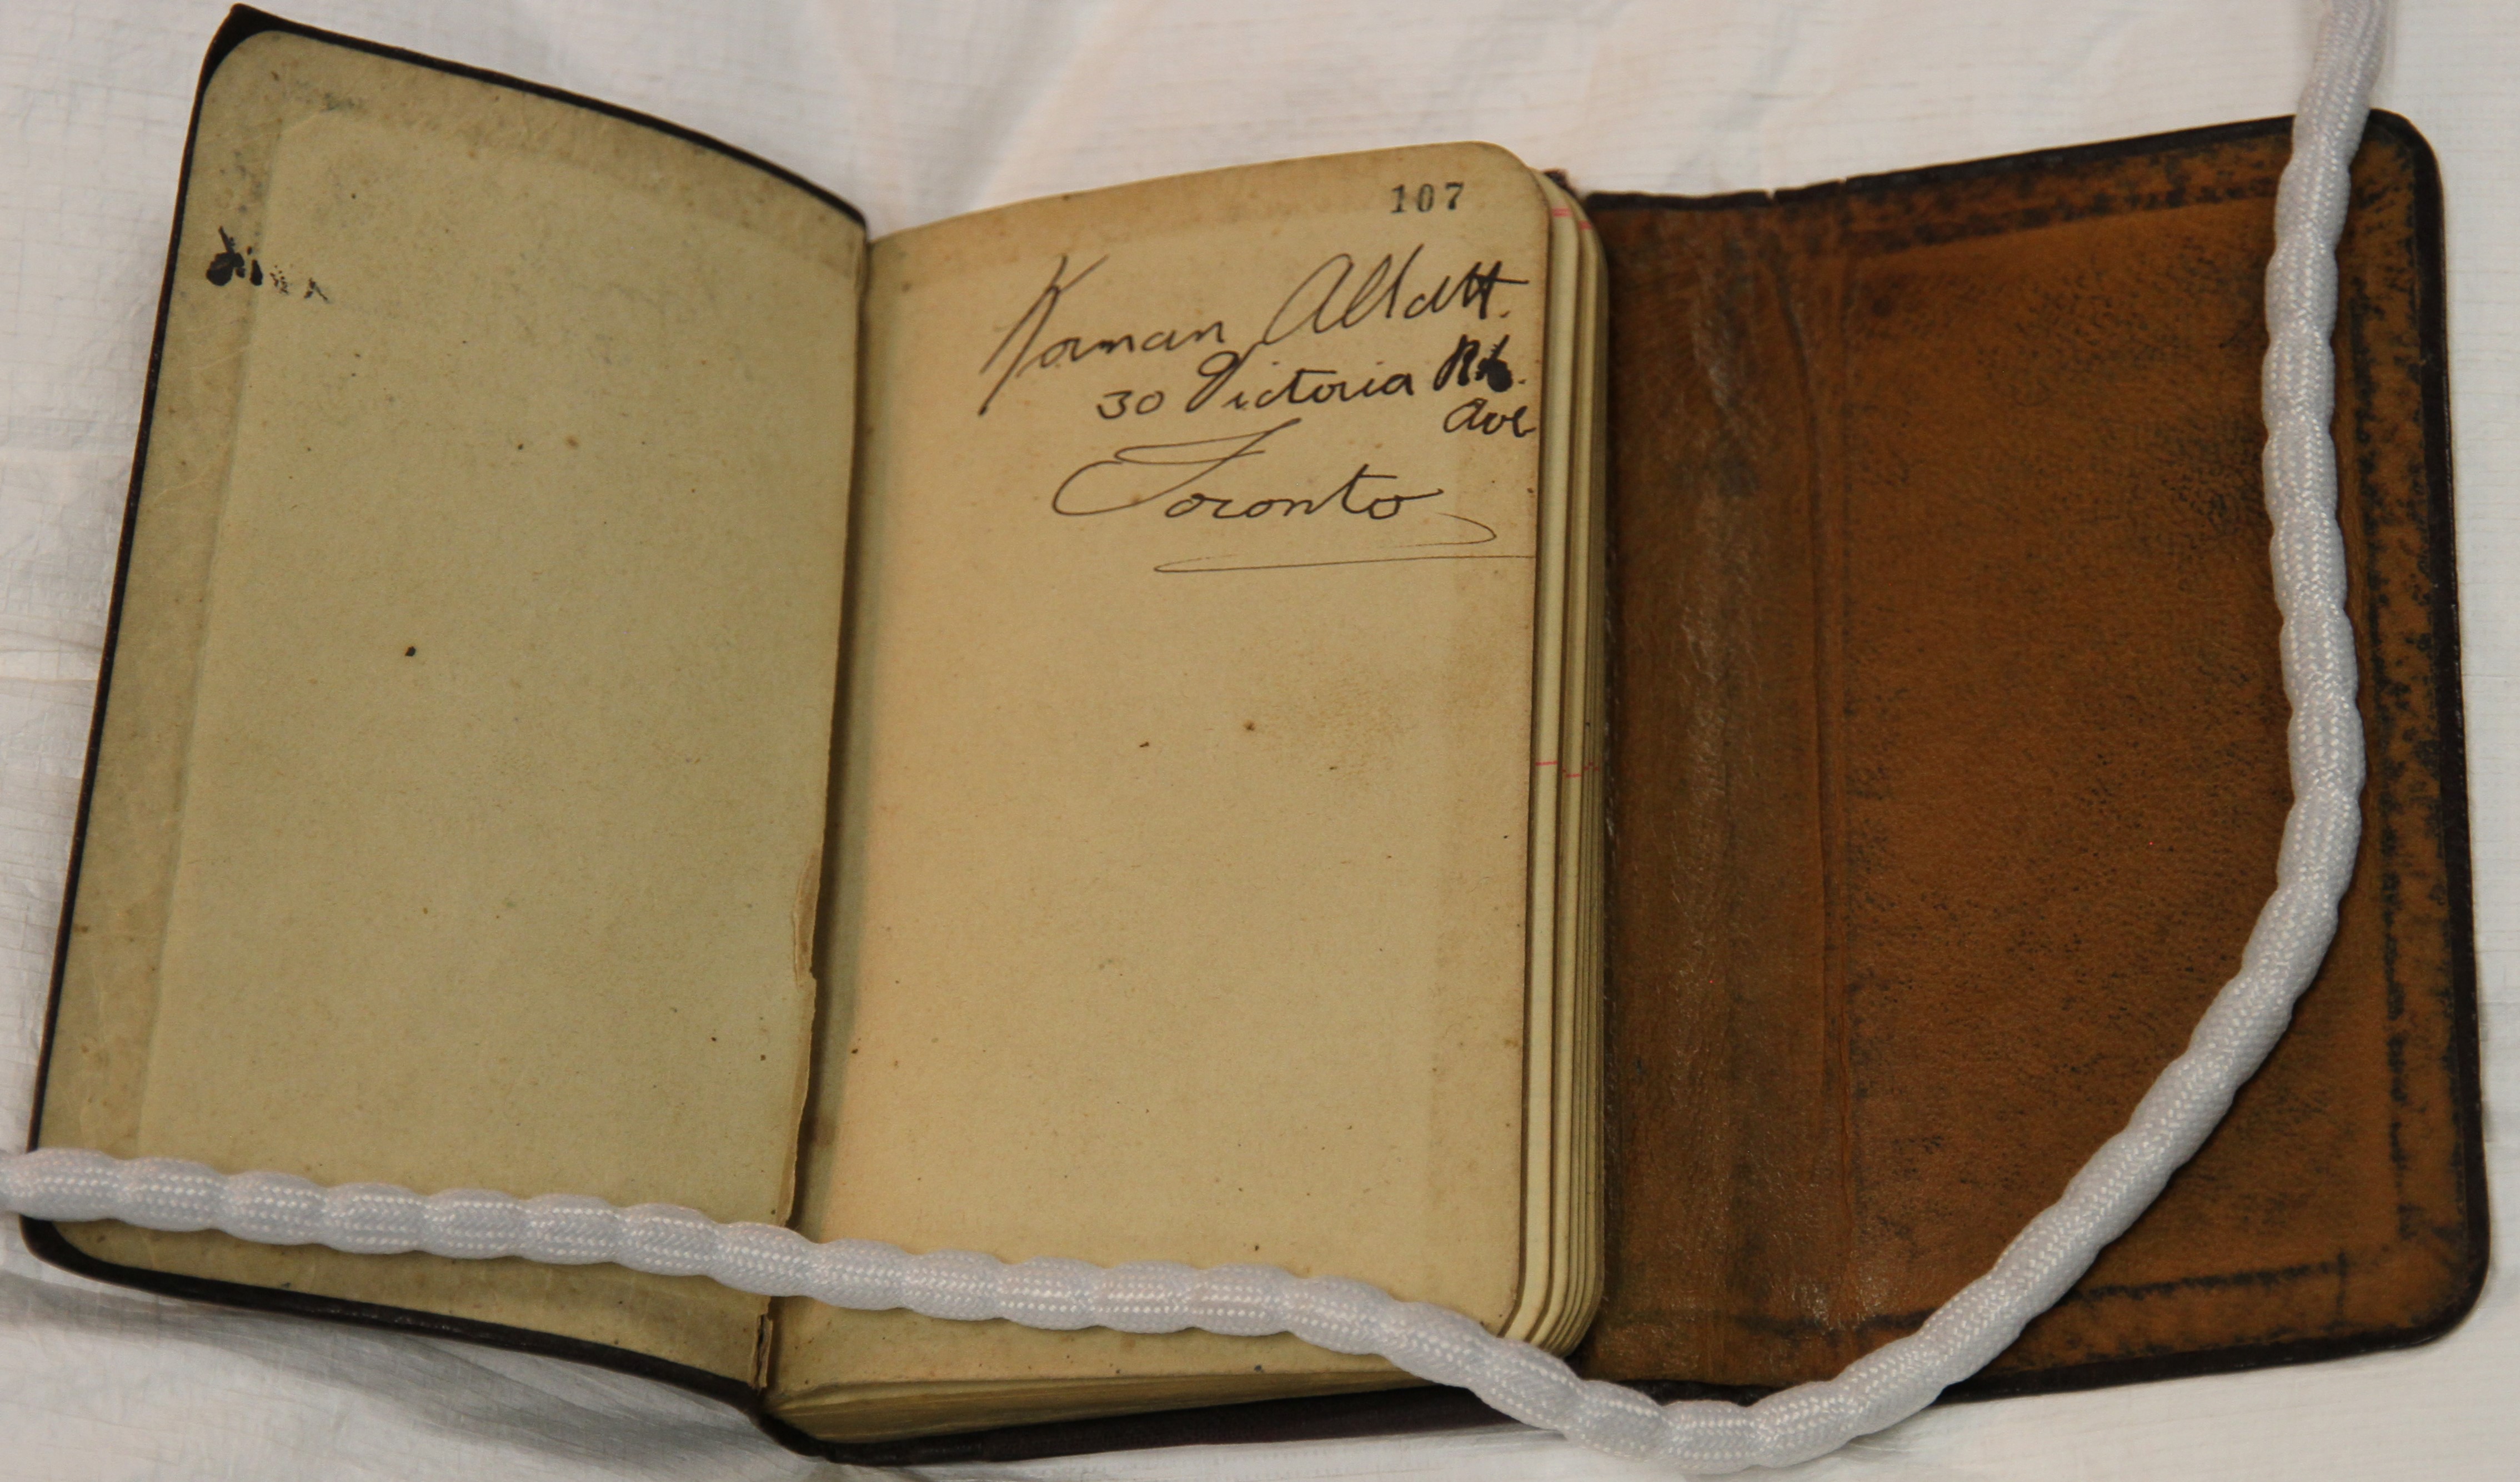 107
Norman Allatt.
30 Victoria Rd.
Ave
Toronto